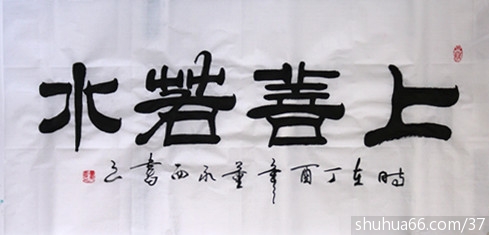 上善若水
時在丁酉年董永西書之
shuhua66.com/37